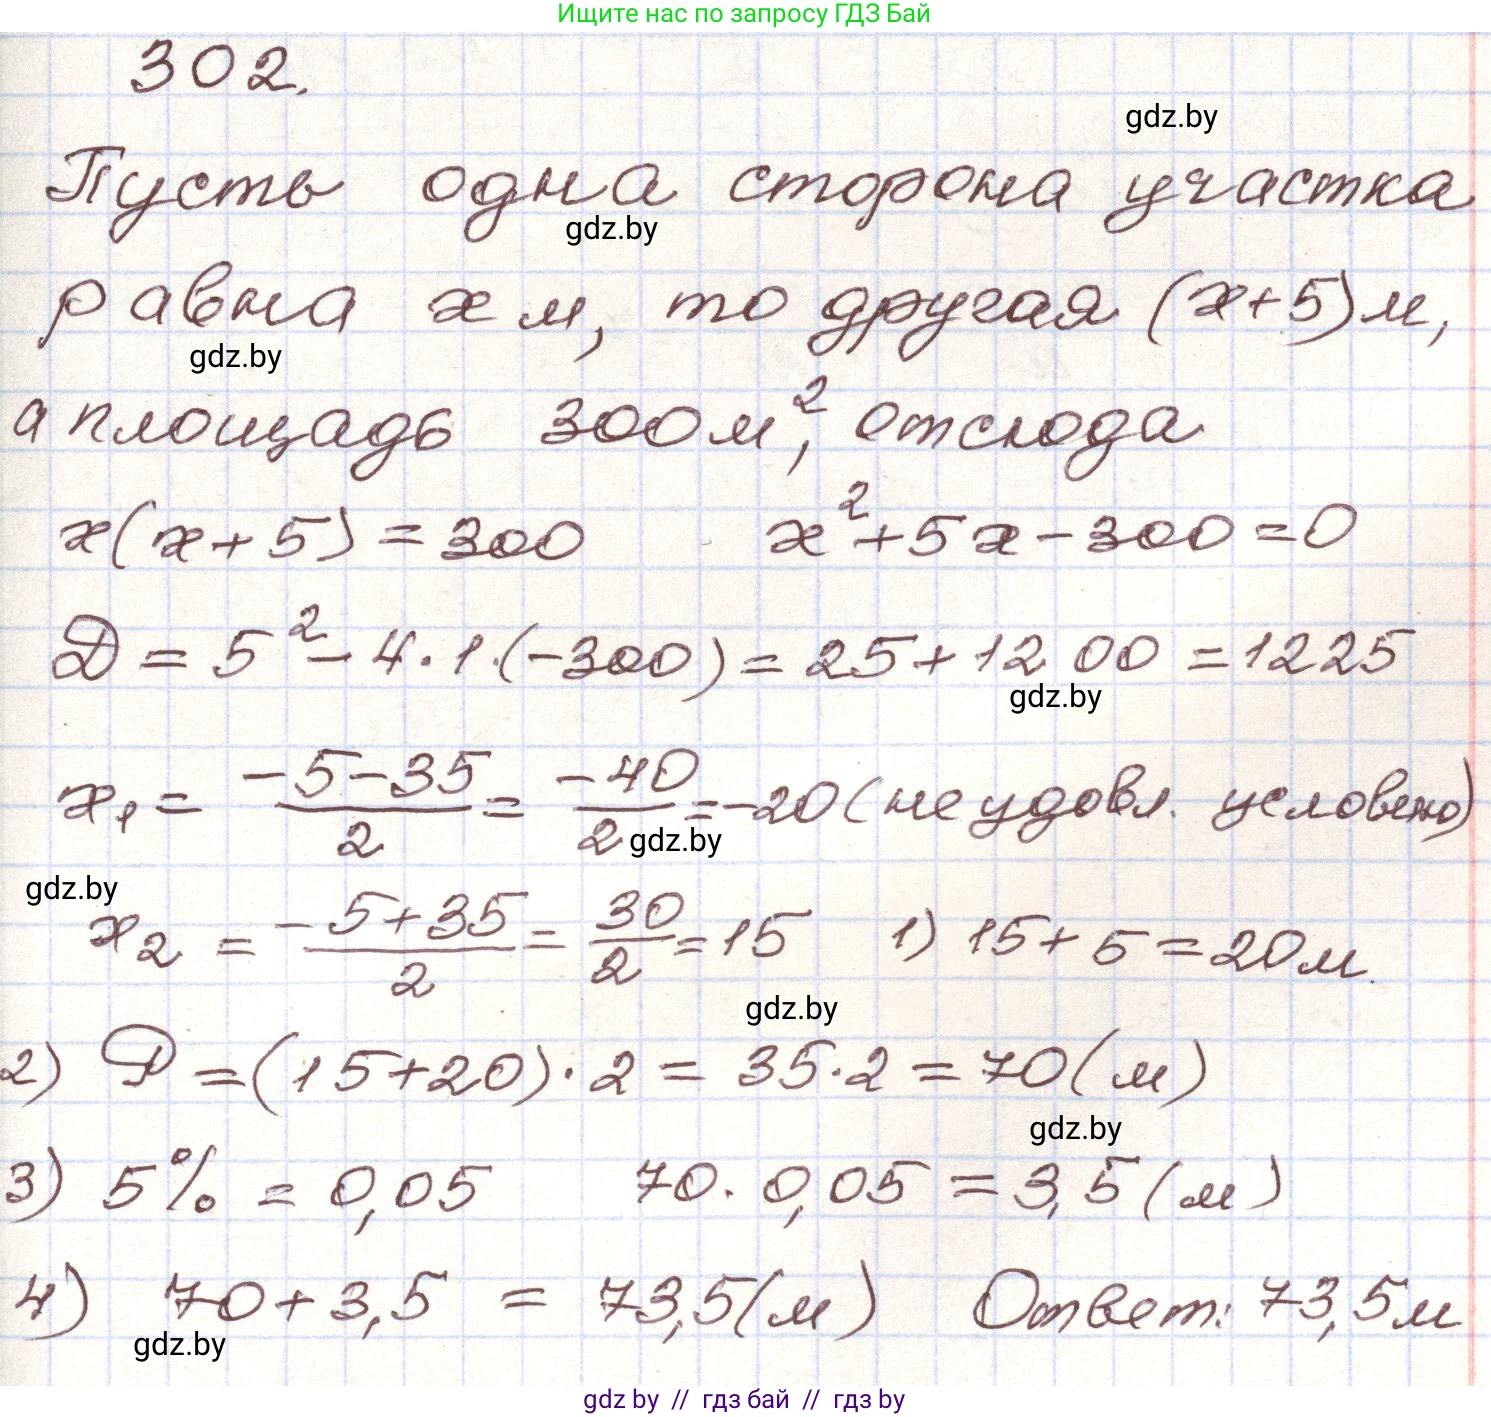 Ищите нас по запросу ГДЗ Бай
302.
gdz.by
Пусть одна сторона участка
gdz.by
равна x м, то другая (x+5) м,
gdz.by
а площадь 300 м², отсюда
x(x+5)=300 x²+5x-300=0
D = 5² - 4·1·(-300) = 25+1200 = 1225
gdz.by
x₁ = (-5-35)/2 = -40/2 = -20 (не удовл. условию)
gdz.by
gdz.by
x₂ = (-5+35)/2 = 30/2 = 15 1) 15+5=20 м.
gdz.by
2) P=(15+20)·2 = 35·2=70(м)
gdz.by
3) 5% = 0,05 70·0,05 = 3,5(м)
4) 70+3,5 = 73,5(м) Ответ: 73,5 м
gdz.by
gdz.by // гдз бай // гдз by